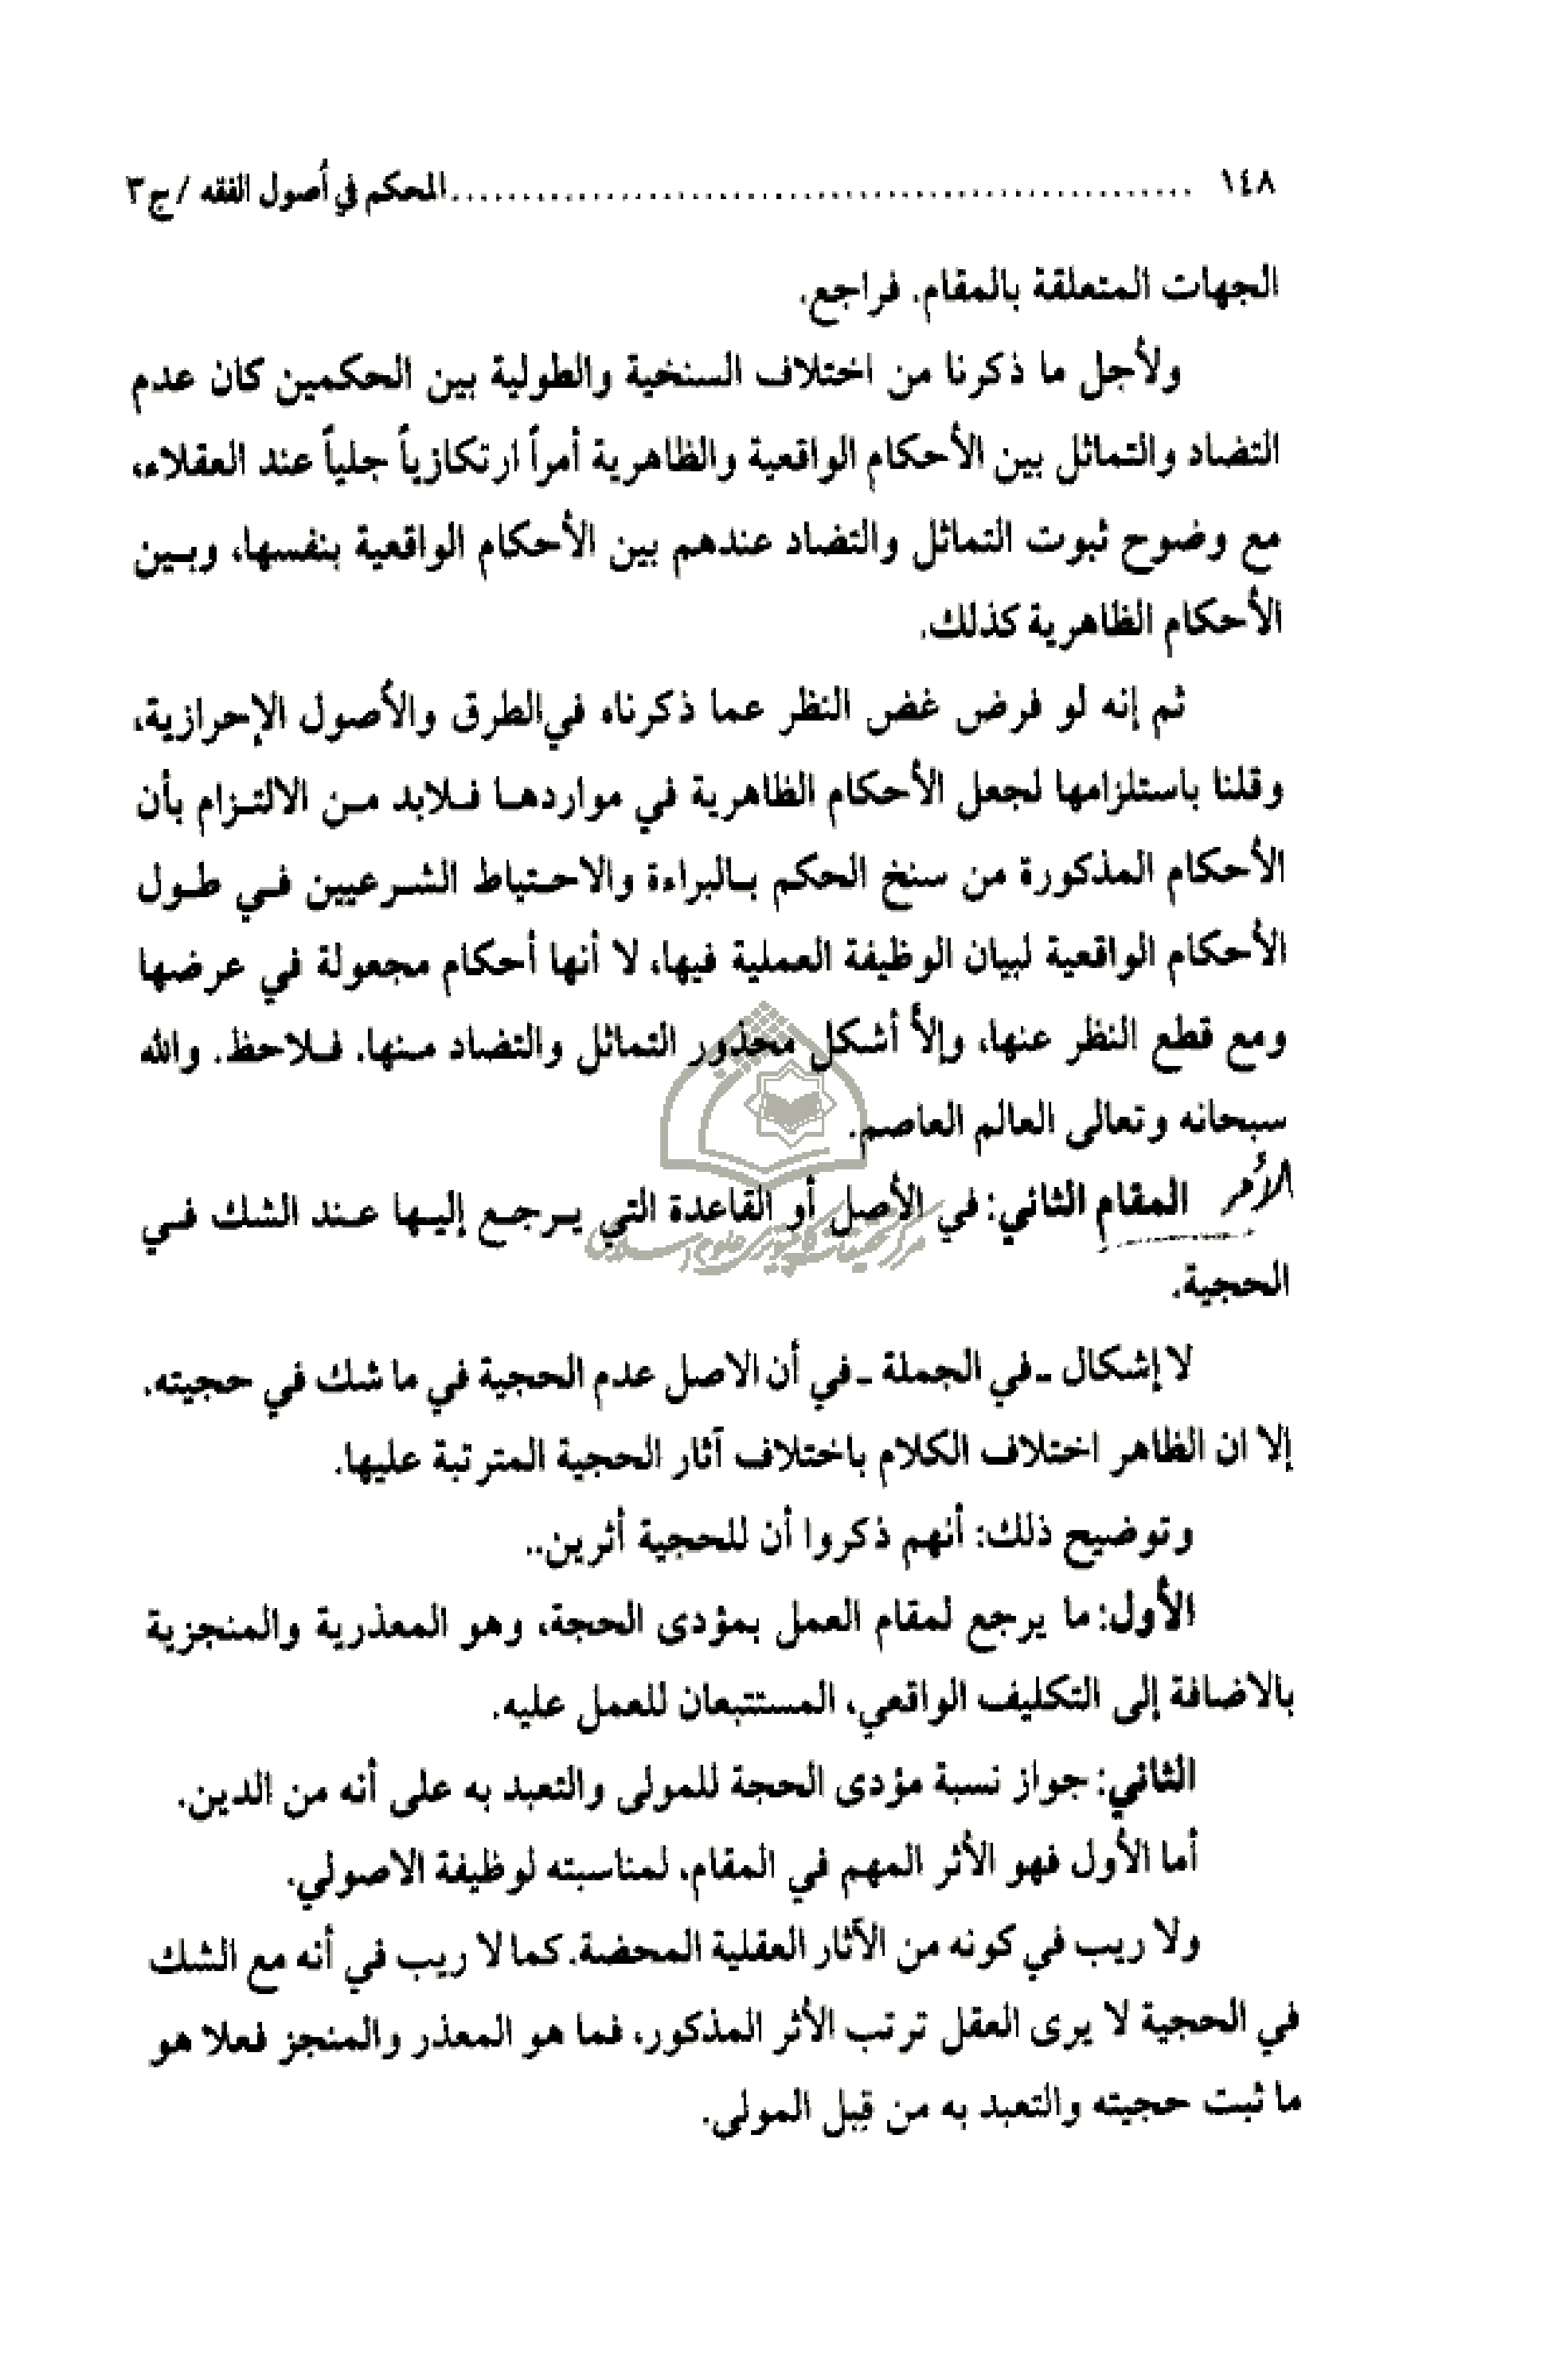 ١٤٨ ........................................................ المحكم في أصول الفقه / ج٣
الجهات المتعلقة بالمقام. فراجع.
ولأجل ما ذكرنا من اختلاف السنخية والطولية بين الحكمين كان عدم
التضاد والتماثل بين الأحكام الواقعية والظاهرية أمراً ارتكازياً جلياً عند العقلاء،
مع وضوح ثبوت التماثل والتضاد عندهم بين الأحكام الواقعية بنفسها، وبـين
الأحكام الظاهرية كذلك.
ثم إنه لو فرض غض النظر عما ذكرناه في الطرق والأصول الإحرازية،
وقلنا باستلزامها لجعل الأحكام الظاهرية في مواردهـا فـلابد مـن الالتـزام بأن
الأحكام المذكورة من سنخ الحكم بـالبراءة والاحـتياط الشـرعيين فـي طـول
الأحكام الواقعية لبيان الوظيفة العملية فيها، لا أنها أحكام مجعولة في عرضها
ومع قطع النظر عنها، وإلاّ أشكل محذور التماثل والتضاد مـنها. فـلاحظ. والله
سبحانه وتعالى العالم العاصم.
الأمر المقام الثاني: في الأصل أو القاعدة التي يـرجـع إليـها عـند الشك فـي
الحجية.
لا إشكال ـ في الجملة ـ في أن الاصل عدم الحجية في ما شك في حجيته.
إلا ان الظاهر اختلاف الكلام باختلاف آثار الحجية المترتبة عليها.
وتوضيح ذلك: أنهم ذكروا أن للحجية أثرين..
الأول: ما يرجع لمقام العمل بمؤدى الحجة، وهو المعذرية والمنجزية
بالاضافة إلى التكليف الواقعي، المستتبعان للعمل عليه.
الثاني: جواز نسبة مؤدى الحجة للمولى والتعبد به على أنه من الدين.
أما الأول فهو الأثر المهم في المقام، لمناسبته لوظيفة الاصولي.
ولا ريب في كونه من الآثار العقلية المحضة. كما لا ريب في أنه مع الشك
في الحجية لا يرى العقل ترتب الأثر المذكور، فما هو المعذر والمنجز فعلا هو
ما ثبت حجيته والتعبد به من قِبل المولى.